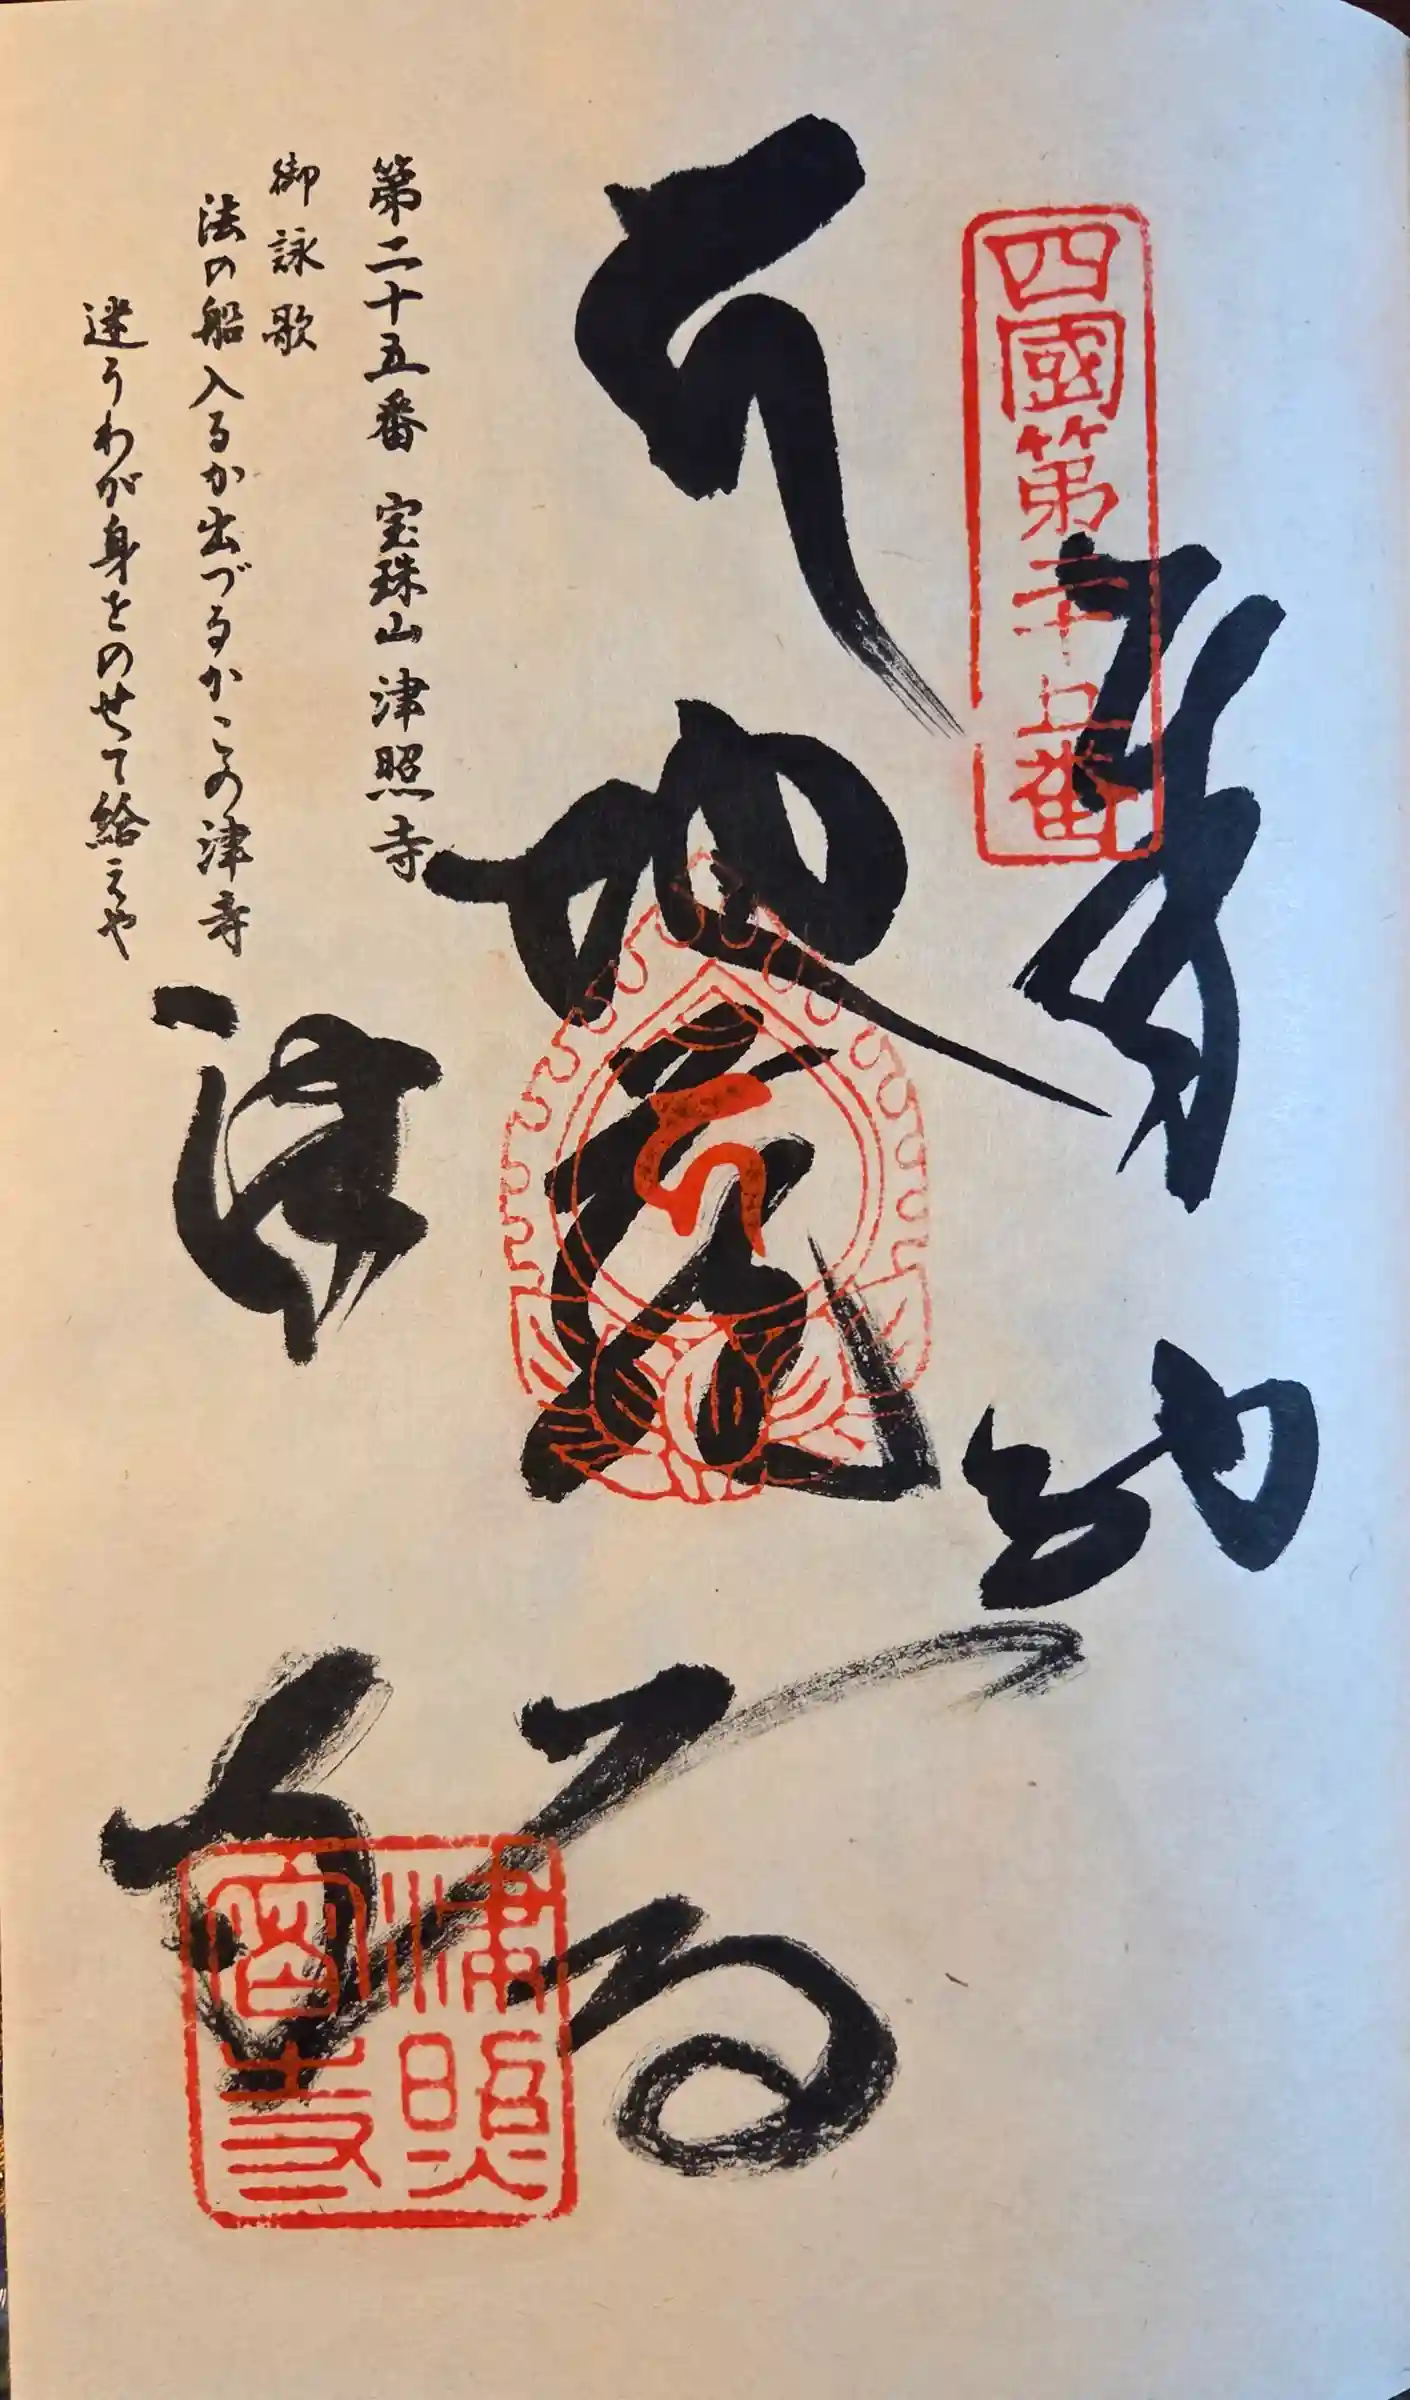 四國第二十五番
奉納
地蔵
第二十五番 宝珠山 津照寺
御詠歌
法の船入るか出づるかこの津寺
迷うわが身をのせて給えや
津寺
津照密寺